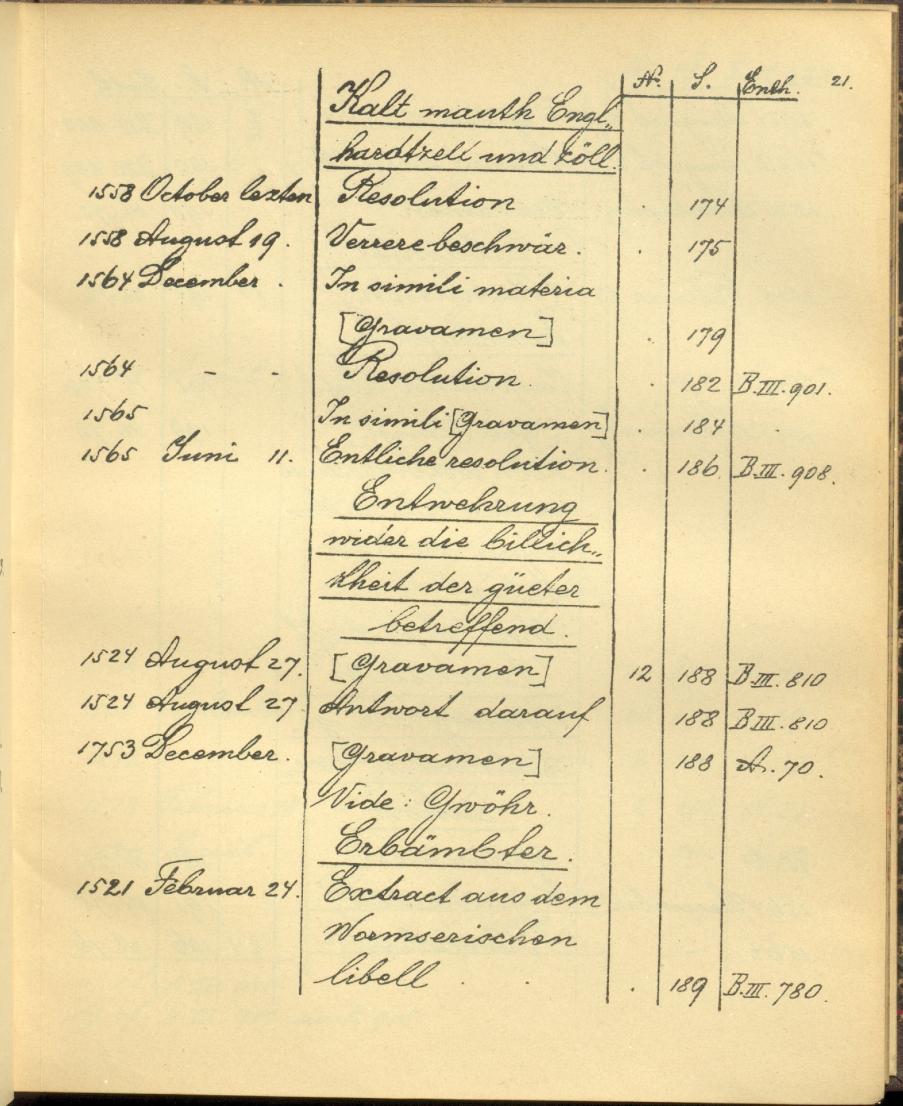 N. S. Enth. 21.
Kalt mauth Engl„
hardtzell und zöll.
1558 October lezten Resolution . 174
1558 August 19. Verrere beschwär. . 175
1564 December . In simili materia
[Gravamen] . 179
1564 - - Resolution . 182 B.III.901.
1565 In simili [Gravamen] . 184 .
1565 Juni 11. Entliche resolution. . 186 B.III.908.
Entwehrung
wider die billich„
kheit der güeter
betreffend.
1524 August 27. [Gravamen] 12 188 B.III.810
1524 August 27. Antwort darauf 188 B.III.810
1753 December. [Gravamen] 188 A. 70.
Vide: Gwöhr.
Erbämbter.
1521 Februar 24. Extract aus dem
Wormserischen
libell . . . 189 B.III.780.